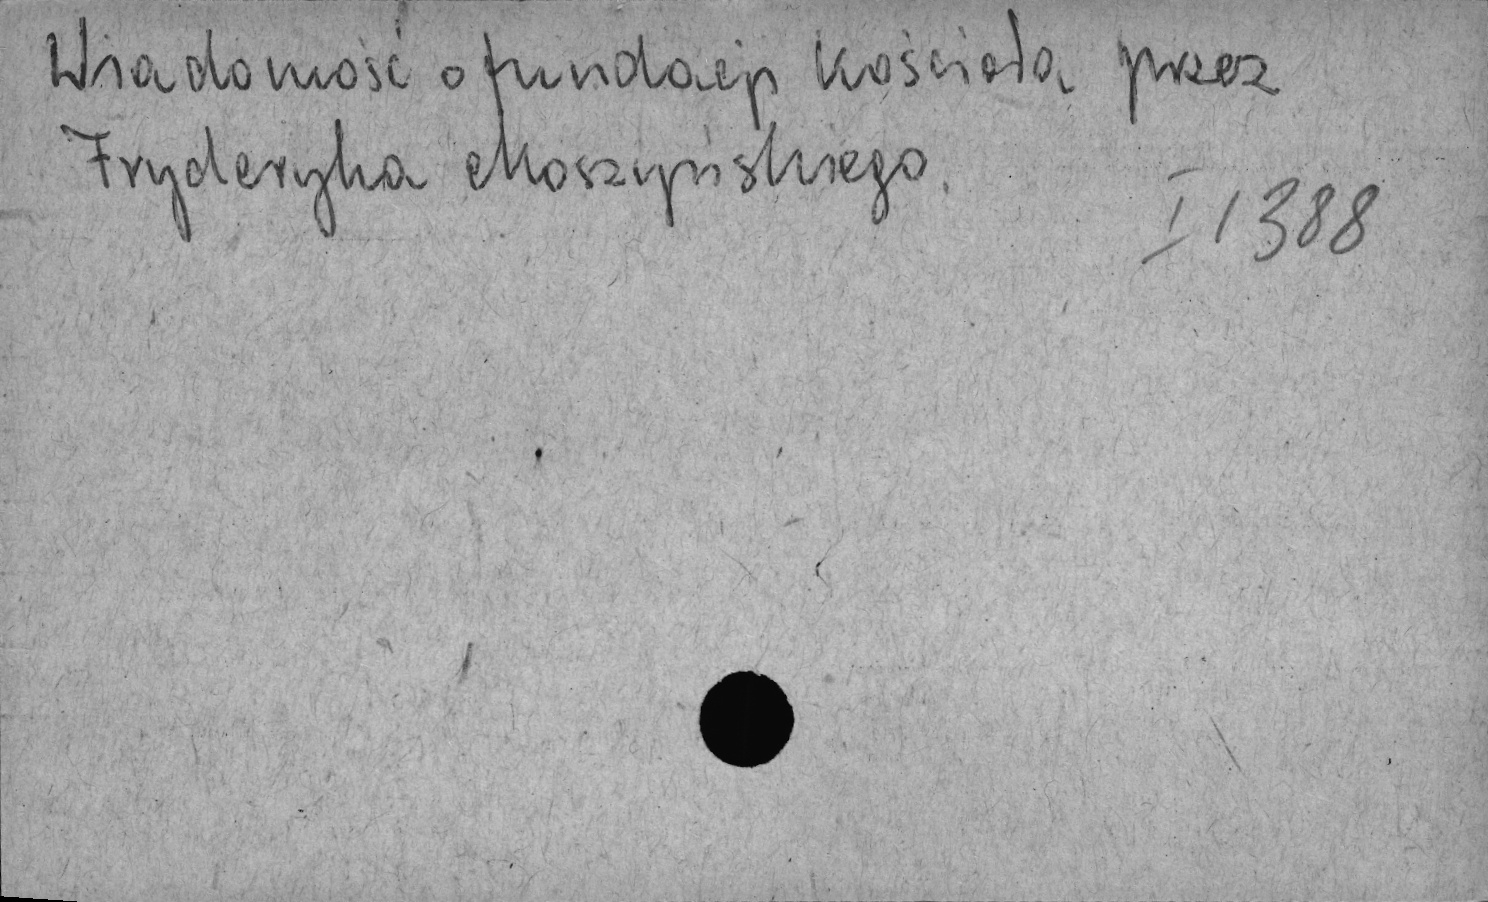 Wiadomość o fundacji kościoła przez
Fryderyka Moszyńskiego.
I 1388